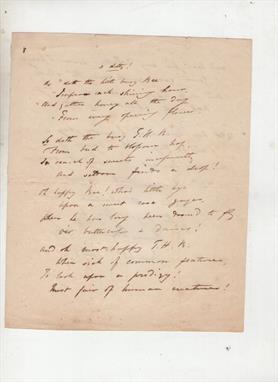 a ditty!
As "doth the little busy Bee
"Improve each shining hour,
"And gathers honey all the day
"From every opening flower
So doth the busy T. H. B.
From bud to blossom hop,
In search of sweets
And seldom finds a drop!
Oh happy Bee! whose little eye
upon a sweet rose gazes
When he has long been doomed to fly
o'er buttercups & daisies!
And oh most happy T. H. B.
When sick of common features,
To look upon a prodigy!
Most fair of human creatures!